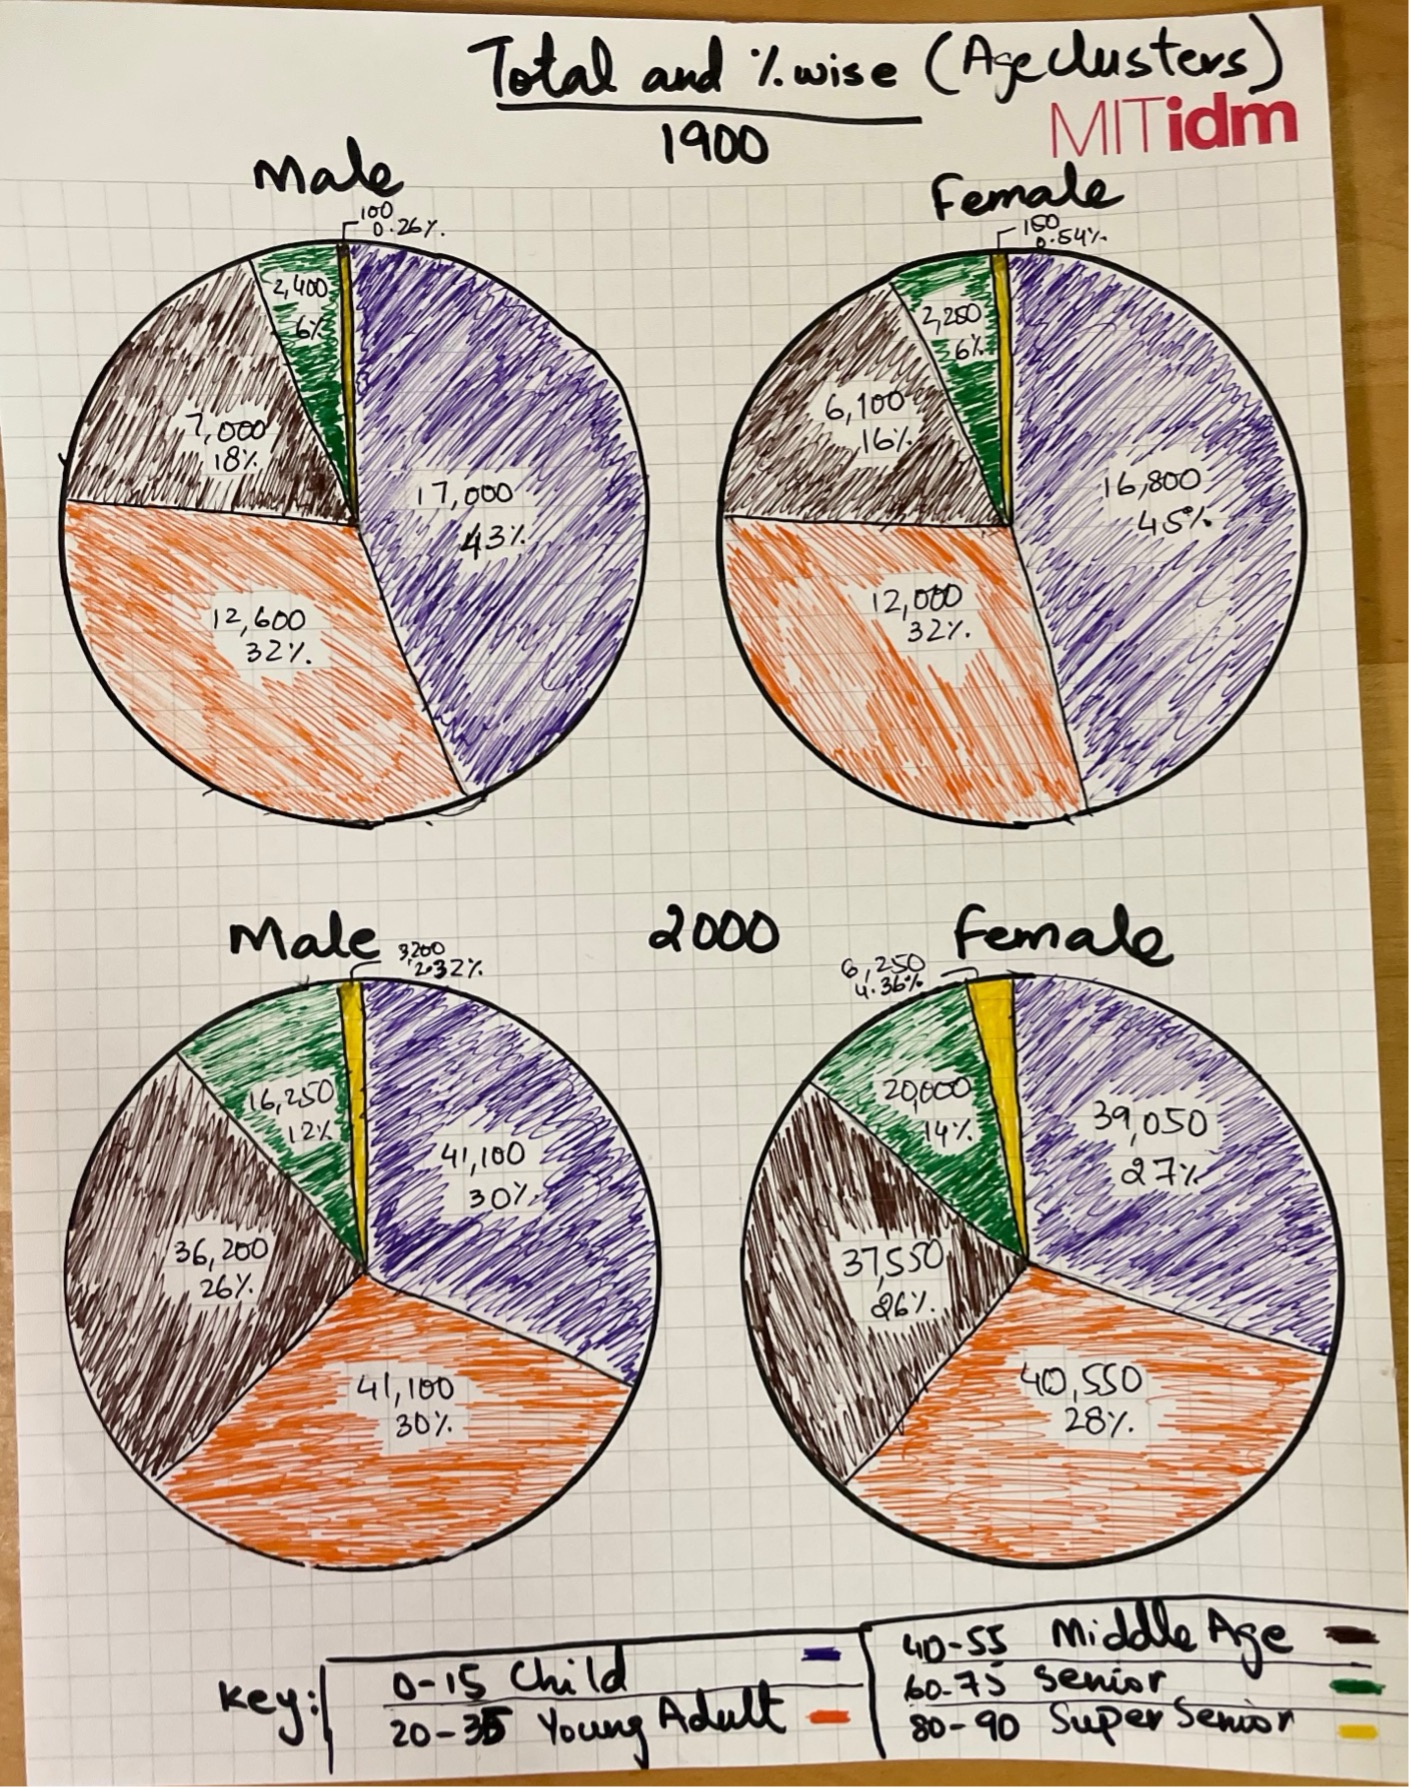 Total and %wise (Age clusters)
MITidm
1900
Male
Female
100
0.26%.
2,400
6%
7,000
18%.
17,000
43%.
12,600
32%.
0.54%.
6%
6,100
16%
16,800
45%.
12,000
32%.
2000
Male
Female
3,200
2.32%.
16,250
12%
41,100
30%.
36,200
26%.
41,100
30%.
6,250
4.36%
20,000
14%
39,050
27%
37,550
26%.
40,550
28%.
Key:
0-15 Child
20-35 Young Adult
40-55 Middle Age
60-75 Senior
80-90 Super Senior